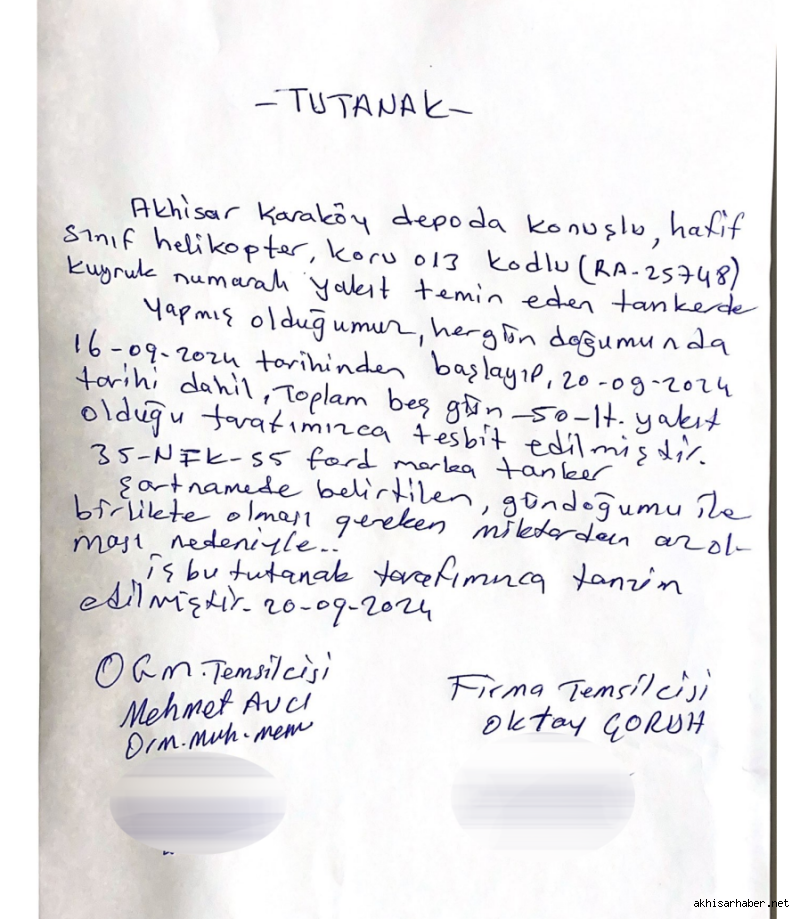 - TUTANAK -
Akhisar Karaköy depoda konuşlu, hafif
sınıf helikopter, koru 013 kodlu (RA-25748)
kuyruk numaralı yakıt temin eden tankerde
yapmış olduğumuz, hergün doğumunda
16-09-2024 tarihinden başlayıp, 20-09-2024
tarihi dahil, Toplam beş gün -50-lt. yakıt
olduğu tarafımızca tesbit edilmiştir.
35-NFK-55 ford marka tanker
şartnamede belirtilen, gündoğumu ile
birlikte olması gereken miktardan az ol-
ması nedeniyle..
iş bu tutanak tarafımızca tanzim
edilmiştir. 20-09-2024
OGM. Temsilcisi
Mehmet AVCI
Orm. Muh. mem
Firma Temsilcisi
Oktay GORUH
akhisarhaber.net